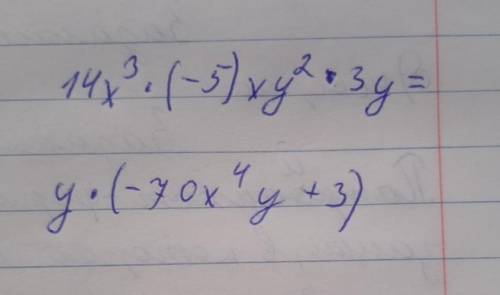 14x³·(-5)xy²·3y=
y·(-70x⁴y+3)